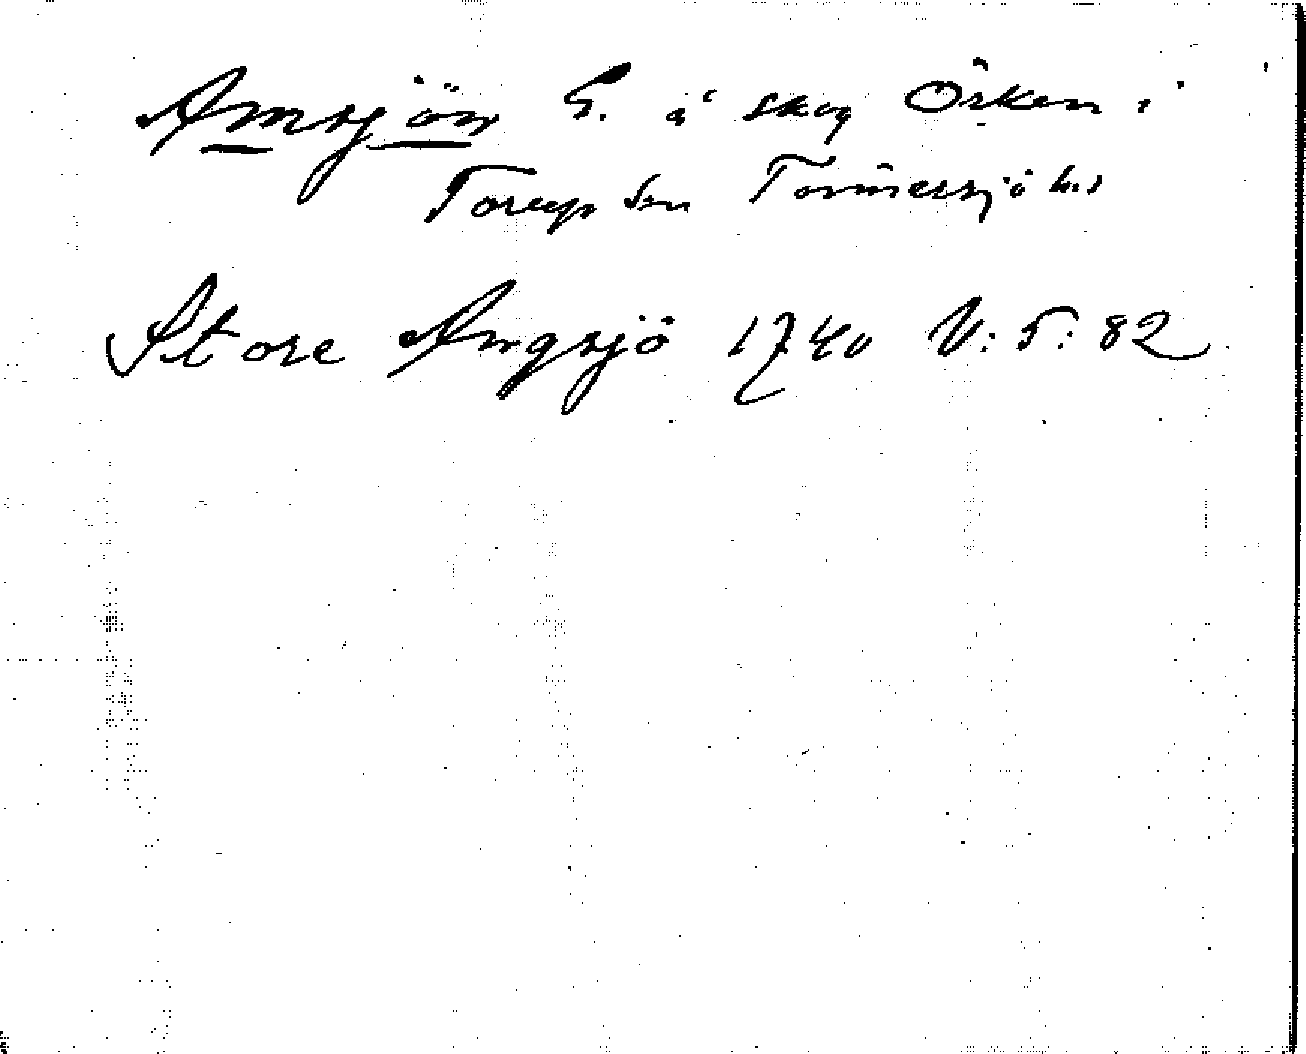 Amsjön G. å skog Örken i
Torup sn Tönnersjö hd
Store Amgsjö 1740 V: 5: 82